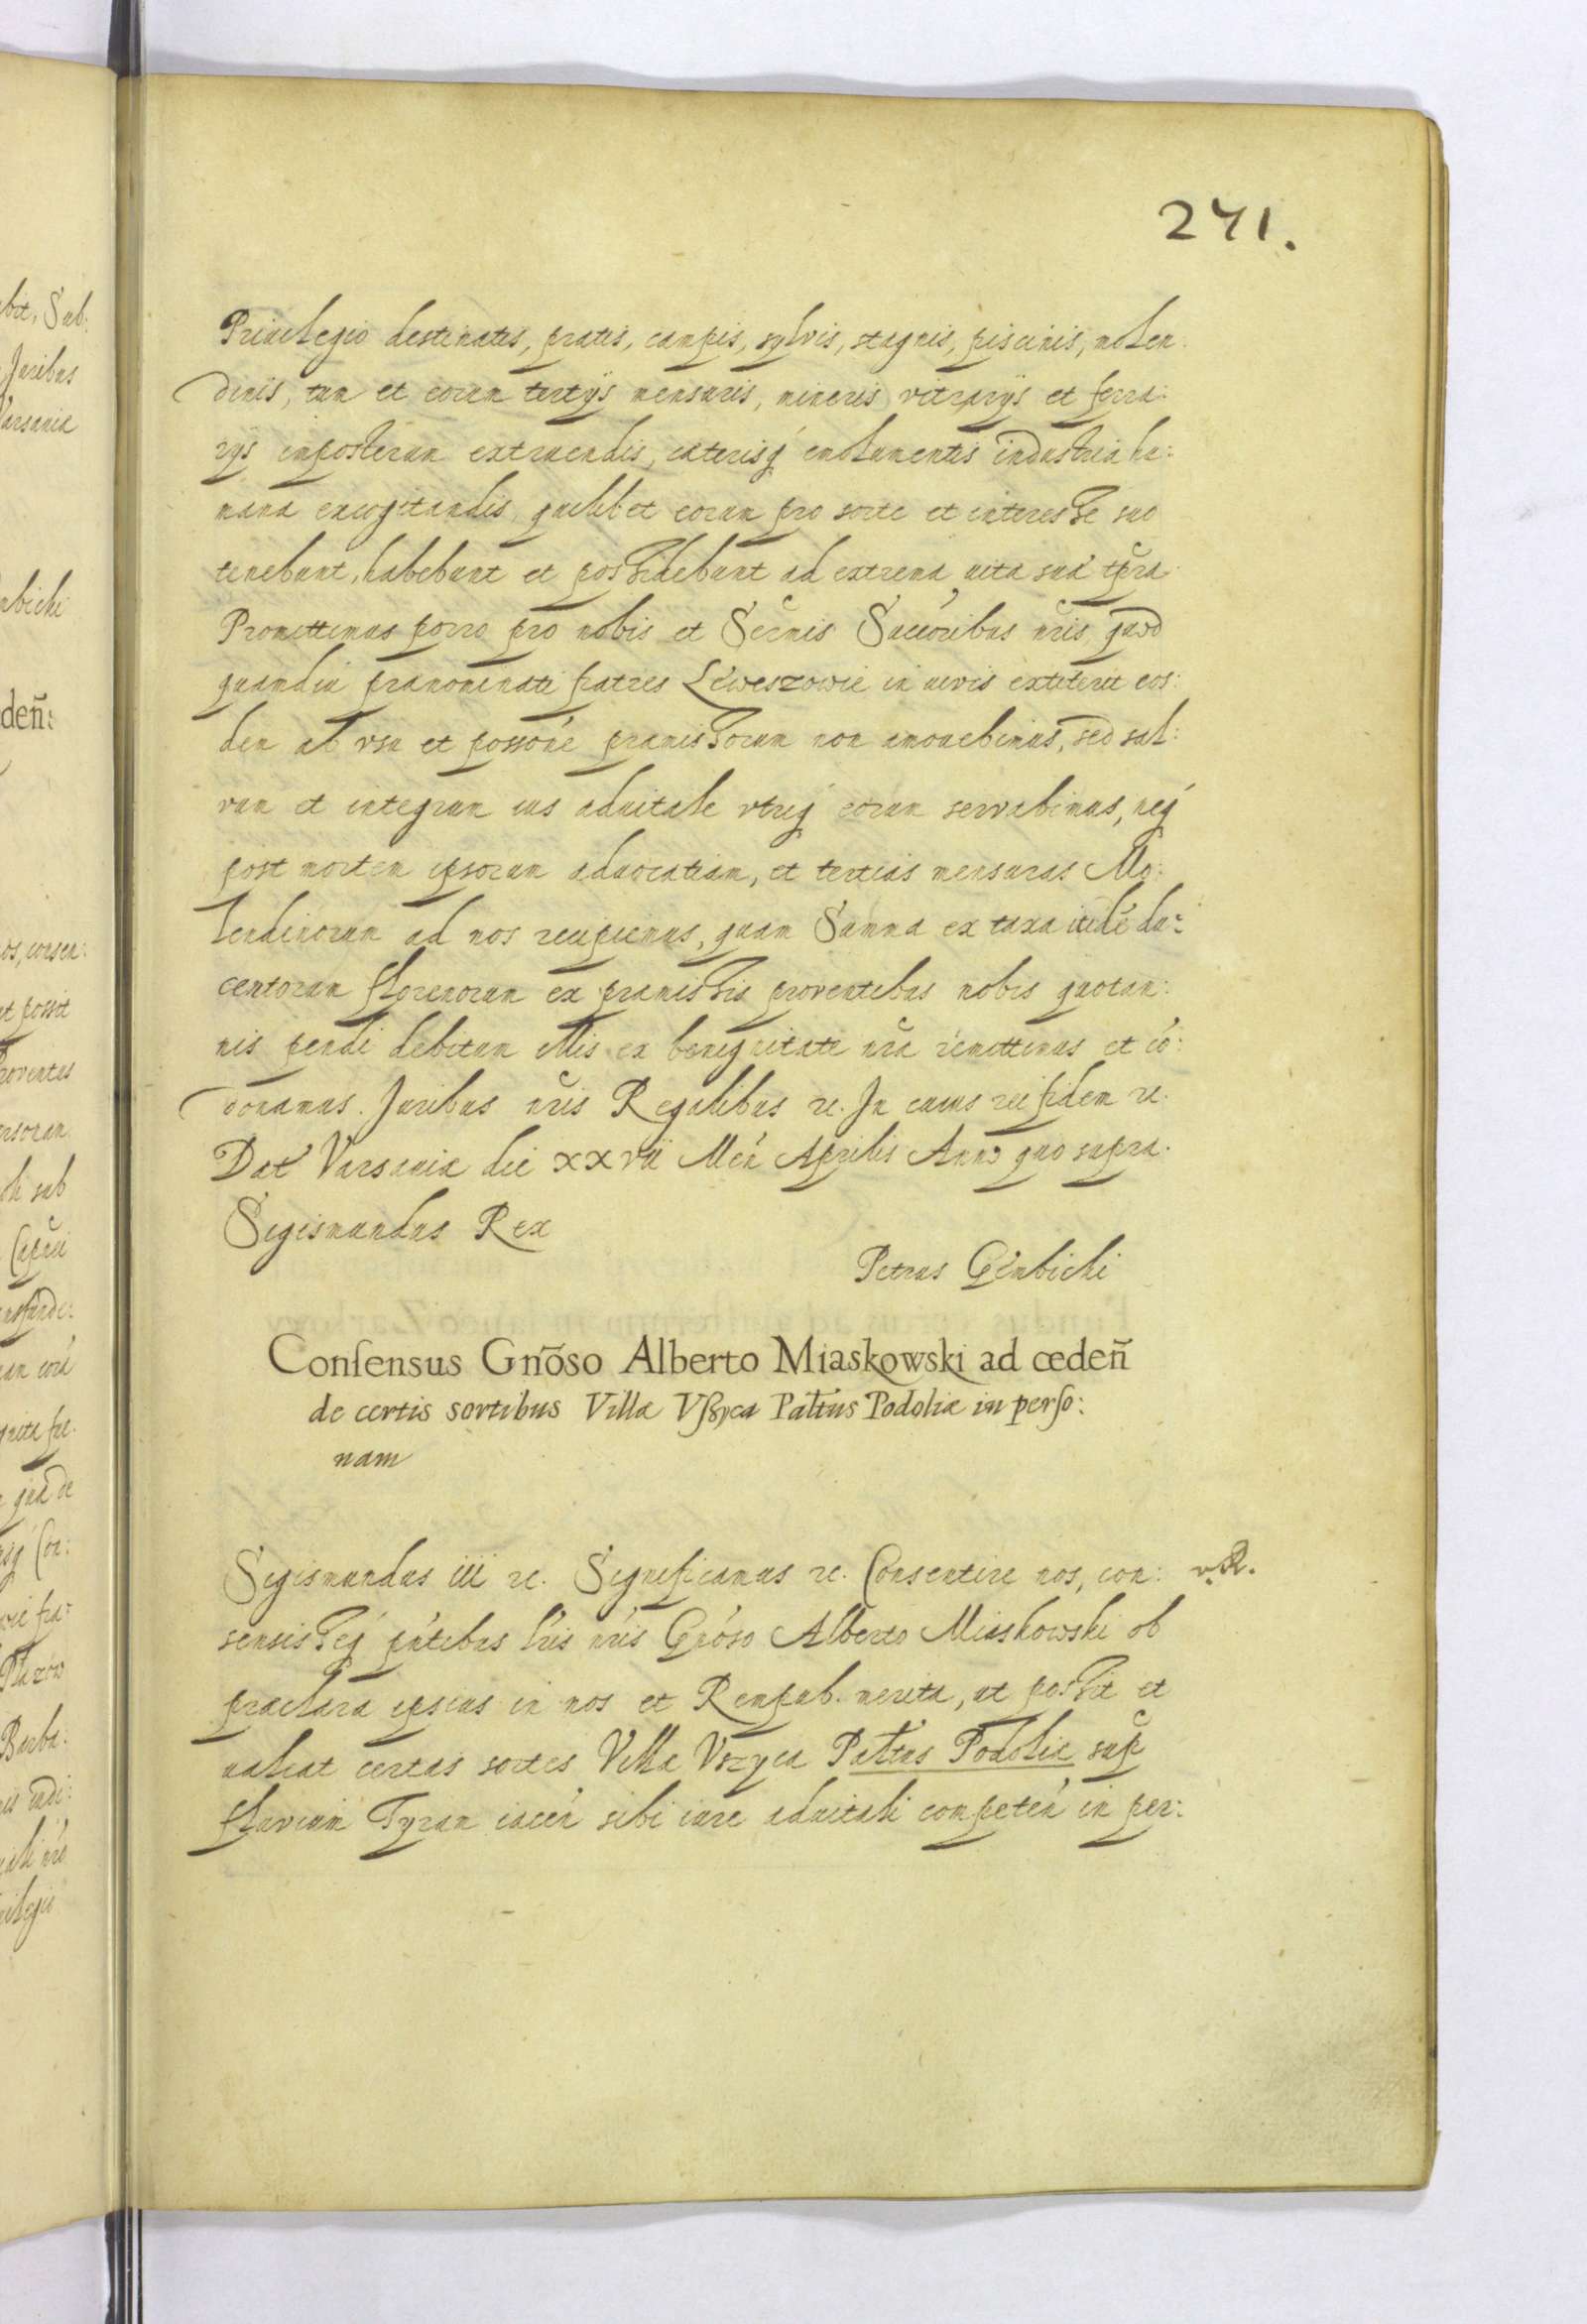 271.
Priuilegio destinatis, pratis, campis, sylvis, stagnis, piscinis, molen:
dinis, tum et eorum tertijs mensuris, mineris vitrarijs et ferra:
rijs imposterum extruendis, cæterisq́ emolumentis industria hu:
mana excogitandis, quilibet eorum pro sorte et interesse suo
tenebunt, habebunt et possidebunt ad extrema uitæ suæ tp̃ra.
Promittimus porro pro nobis et Ser̃mis Succoribus nr̃is, quod
quamdiu prænominati fratres Leweszowie in uivis extiterit eos:
dem ab vsu et possoné præmissorum non amouebimus, sed sal:
vum et integrum ius aduitale vtriq́ eorum servabimus, neq́
post mortem ipsorum aduocatiam, et tertias mensuras Mo:
lendinorum ad nos recipiemus, quam Summa ex taxa itidé du:
centorum florenorum ex præmissis proventibus nobis quotan:
nis pendi debitam illis ex benignitate nr̃a remittimus et có:
donamus. Juribus nr̃is Regalibus &c. In cuius rei fidem &c.
Dat̃ Varsaviæ die XXVII Meń Aprilis Anno quo supra.
Sigismundus Rex
Petrus Gembicki
Consensus Gnõso Alberto Miaskowski ad cedeñ
de certis sortibus Villæ Vszyca Palt̃us Podoliæ in perso:
nam
Sigismundus iii &c. Significamus &c. Consentire nos, con:
v.R.
sensisseq́ pńtibus lŕis nŕis Gnóso Alberto Miaskowski ob
præclara ipsius in nos et Rempub. merita, ut possit et
ualeat certas sortes Villæ Vszyca Palt̃us Podoliæ sup̃
fluvium Tyram iaceń sibi iure aduitali competeń in per: